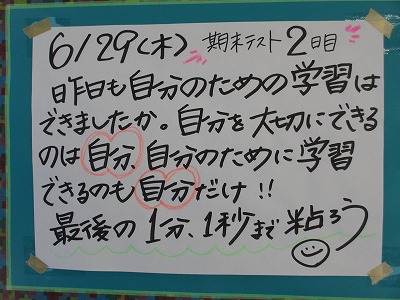 6/29(木) 期末テスト2日目
昨日も自分のための学習は
できましたか。自分を大切にできる
のは自分、自分のために学習
できるのも自分だけ!!
最後の1分、1秒まで粘ろう